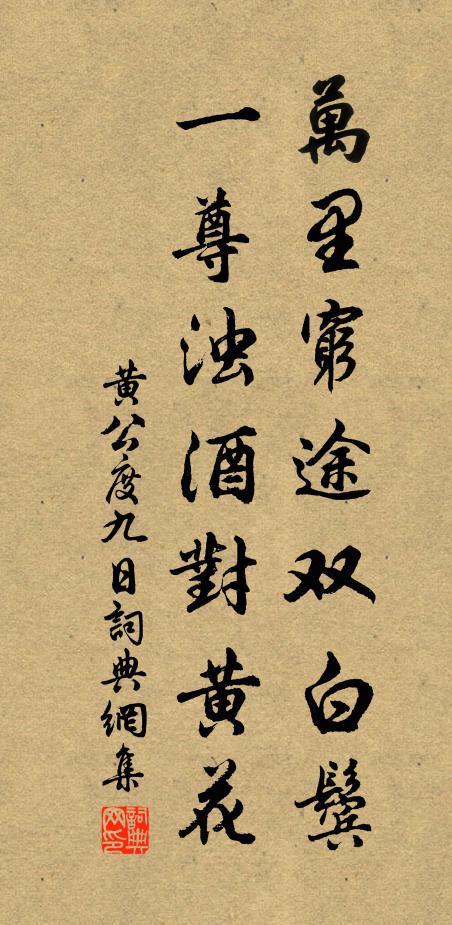 萬里窮途双白鬓
一尊浊酒對黄花
黄公度九日詞典網集
詞典網印